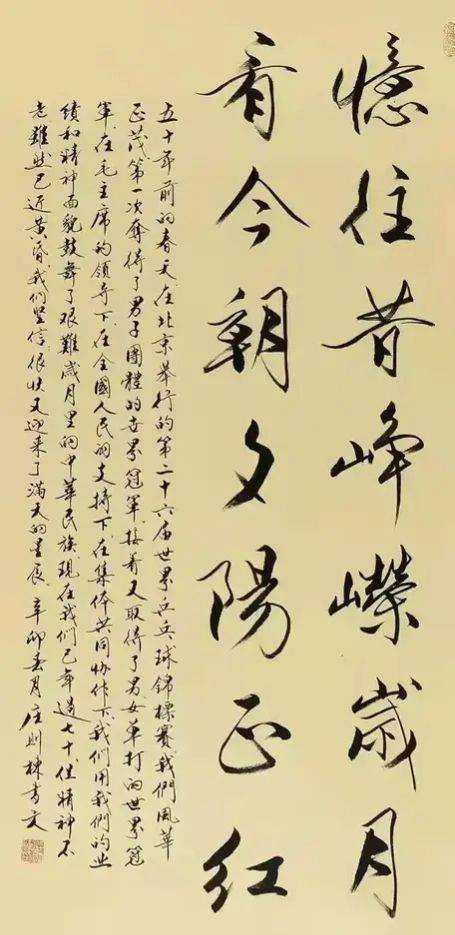 憶往昔峥嶸歲月
看今朝夕陽正红
五十年前的春天在北京举行的第二十六届世界乒乓球錦標赛我們風華
正茂第一次奪得了男子團體的世界冠軍接着又取得了男女单打的世界冠
军在毛主席的领导下在全國人民的支持下在集体共同协作下我们用我們的业
绩和精神面貌鼓舞了艰難歲月里的中華民族现在我们已年逾七十但精神不
老雖然已近黄昏我们坚信很快又迎来了满天的星辰辛卯春月庄则棟書文